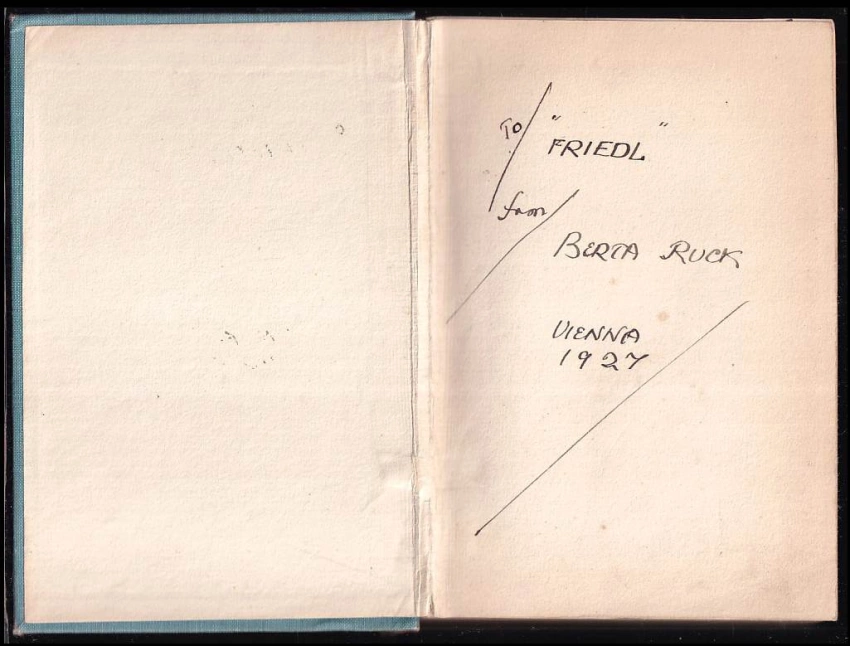 To "FRIEDL"
from
BERTA RUCK
VIENNA
1927